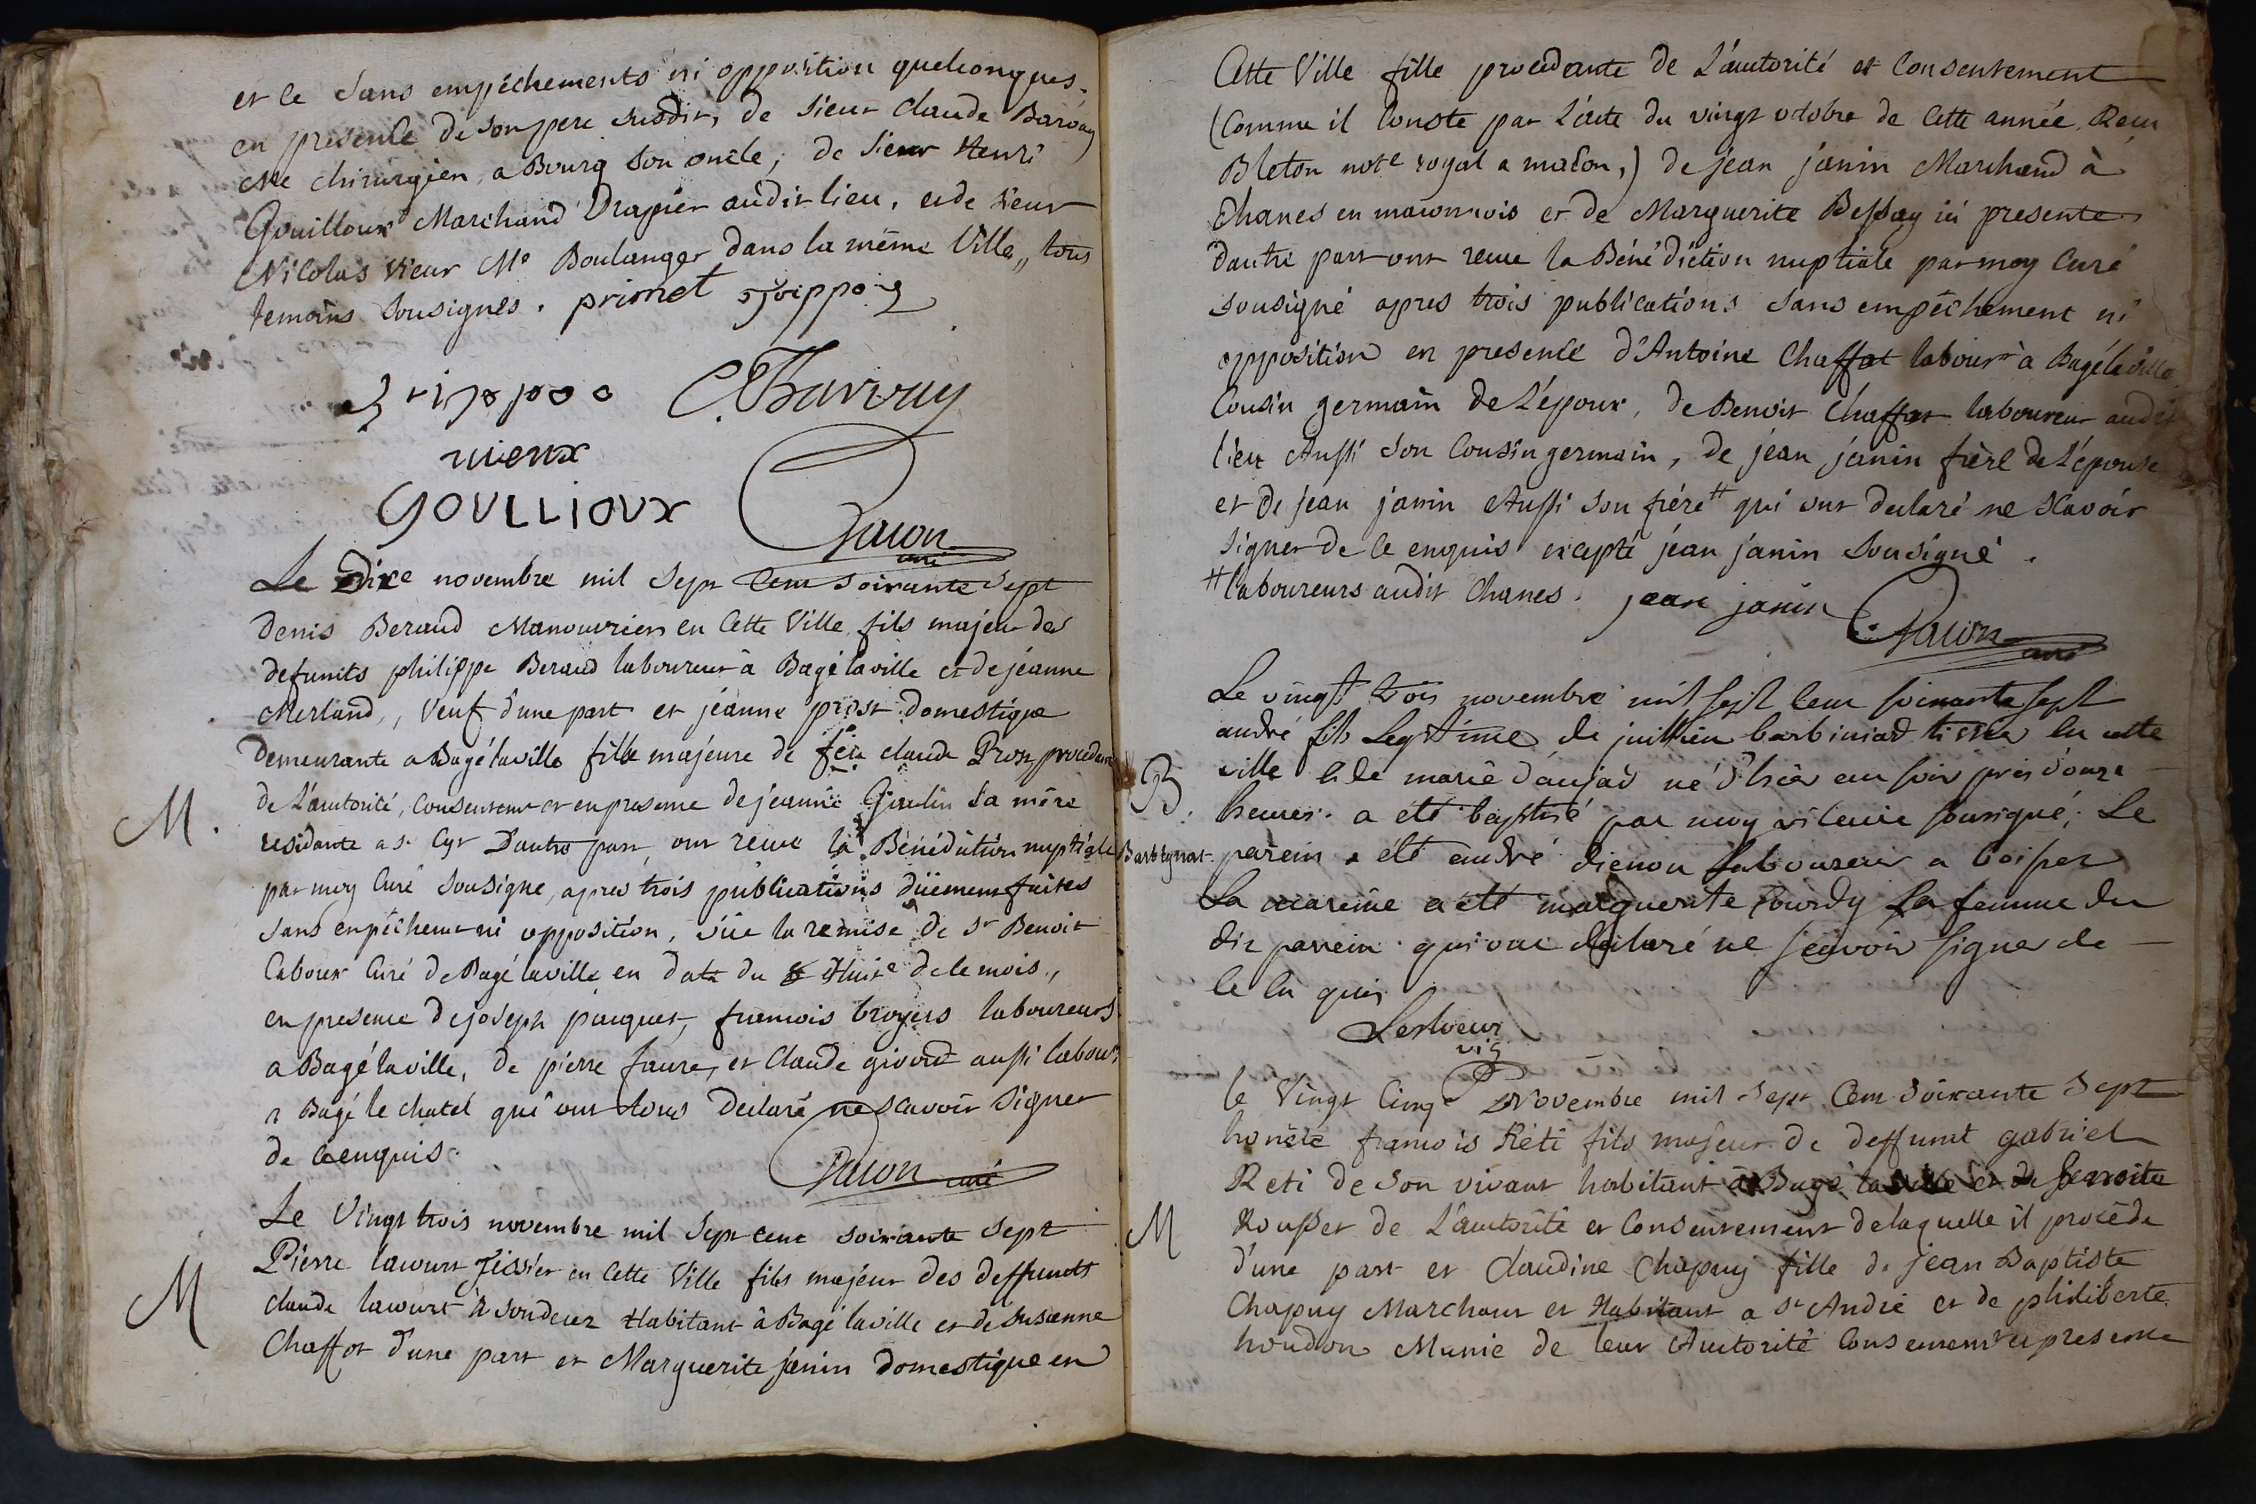 et ce sans empêchements ni opposition quelconques.
en presence de son pere susdit, de sieur Claude Barvay
Me chirurgien a Bourg son oncle, de sieur Henri
Gouilloux Marchand Drapier audit lieu, et de sieur
Nicolas vieux Me Boulanger dans la même Ville, tous
temoins sousignés. primet
C. Barvay
vieux
GOULLIOUX
Pacon
curé
Le Dixe novembre mil sept cent soixante sept
Denis Beraud Manouvrier en Cette Ville fils majeur des
defunts philippe Beraud laboureur à Bagé laville et de jéanne
Merland, Veuf d'une part et jéanne prost Domestique
Demeurante a Bagé laville fille majeure de feu claude Prost procedante
M.
de L'autorité, consentement et en presence de jeanne Gaulin sa mère
residante a st Cyr D'autre part, ont recue la Bénédiction nuptiale
par moy Curé sousigné, apres trois publications düement faites
sans enpêchement ni opposition, vüe la remise de Sr Benoit
Laboux Curé de Bagé laville en date du Huite de ce mois,
en presence de joseph paquet, francois broyers laboureurs
a Bagé laville, de pierre faure, et Claude givord aussi labours
a Bagé le chatel qui ont tous Declaré ne scavoir Signer
de ce enquis.
Pacon curé
Le Vingt trois novembre mil Sept cent soixante Sept
Pierre lacourt Tissier en Cette Ville fils majeur des deffunts
M
claude lacourt Habitant à Bagé laville et de Susanne
Chaffot d'une part et Marguerite janin domestique en
Cette Ville fille procedante de L'autorité et Consentement
(Comme il Conste par L'acte du vingt octobre de Cette année Recu
Bleton note royal a macon,) de jean janin Marchand à
Chanes en maconnois et de Marguerite Bessay ici presente
d'autre part ont recue la Bénédiction nuptiale par moy Curé
sousigné apres trois publications sans empêchement ni
opposition en presence d'Antoine Chaffot labourr à Bagé la ville
Cousin germain de L'époux, de Benoit Chaffot laboureur audit
lieu Aussi son Cousin germain, de jéan janin frère de L'épouse
et de jean janin Aussi son frére # qui ont declaré ne scavoir
signer de ce enquis excepté jéan janin sousigné.
# laboureurs audit Chanes. jean janin
Pacon
curé
Le vingt trois novembre mil sept cent soixante sept
andré fils Legitime de juillien barbiniad tissier en cette
B.
ville et de marie daujad né d'hier au soir près d'onze
heures a été baptisé par moy vicaire sousigné; Le
Barbignat
parein a été andré dienon laboureur a boissez
La mareine a été marguerite Tourdy sa femme du
dit parrein qui ont declaré ne sçavoir signer de
ce en quis
Lesloeur
vic
le Vingt Cinqe Novembre mil Sept Cent Soixante Sept
honète francois Réti fils majeur de deffunt gabriel
Reti de son vivant habitant à Bagé la ville et de benoite
M
Rousset de L'autorité et Consentement de laquelle il procéde
d'une part et Claudine Chapuy fille de jean Baptiste
Chapuy Marchant et Habitant a St André et de philiberte
houdon Munie de leur Autorité Consentement et presence